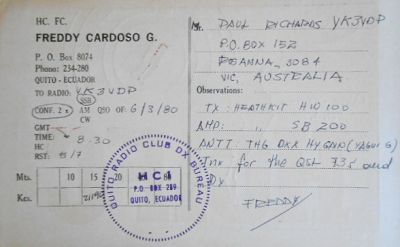 HC. FC.
FREDDY CARDOSO G.
P. O. Box 8074
Phono: 234-280
QUITO - ECUADOR
TO RADIO: VK3VDP
SSB
CONF. 2 x AM QSO OF 6/3/80
CW
GMT
TIME: 8-30
HC
RST: 5/7
Mts. 10 15 20 80
Kcs.
QUITO RADIO CLUB DX BUREAU
HC1
P.O BOX 289
QUITO, ECUADOR
Mr. PAUL RICHARDS VK3VDP
P.O. BOX 152
ROANNA, 3084
VIC, AUSTRALIA
Observations:
TX: HEATHKIT HW 100
AMP: " SB 200
ANTT: TH6 DXX HYGAIN (YAGUI 6)
Tnx for the QSL 73s and
DX
FREDDY